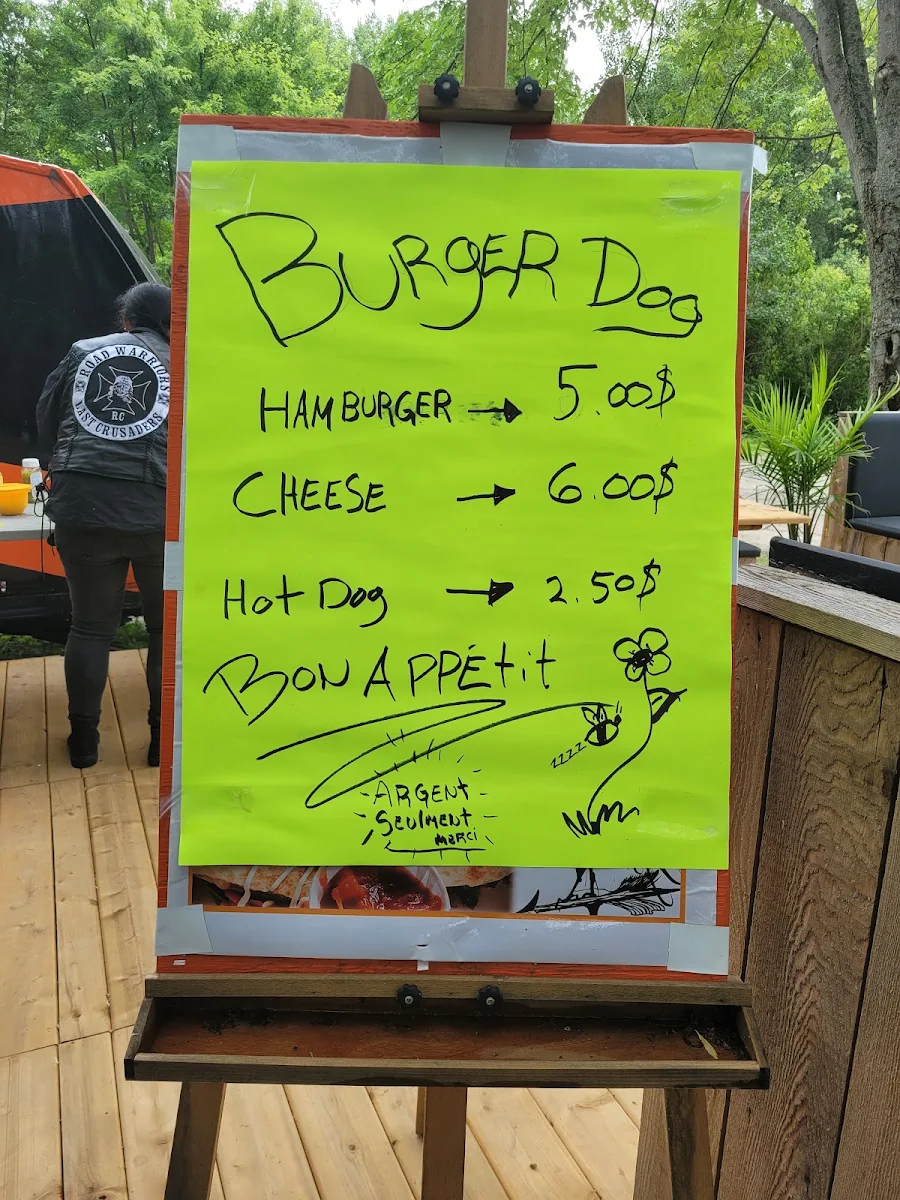 BURGER Dog
HAMBURGER → 5.00$
CHEESE → 6.00$
Hot Dog → 2.50$
BON APPÉtit
zzzz
ARGENt
SEUlMENt
MERCi
ROAD WARRIORS
R.C
LAST CRUSADERS